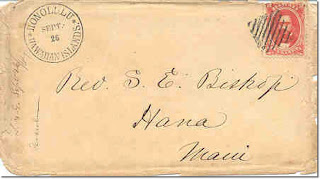 HONOLULU
SEPT.
26
HAWAIIAN ISLANDS
Rev. S. E. Bishop
Hana
Maui